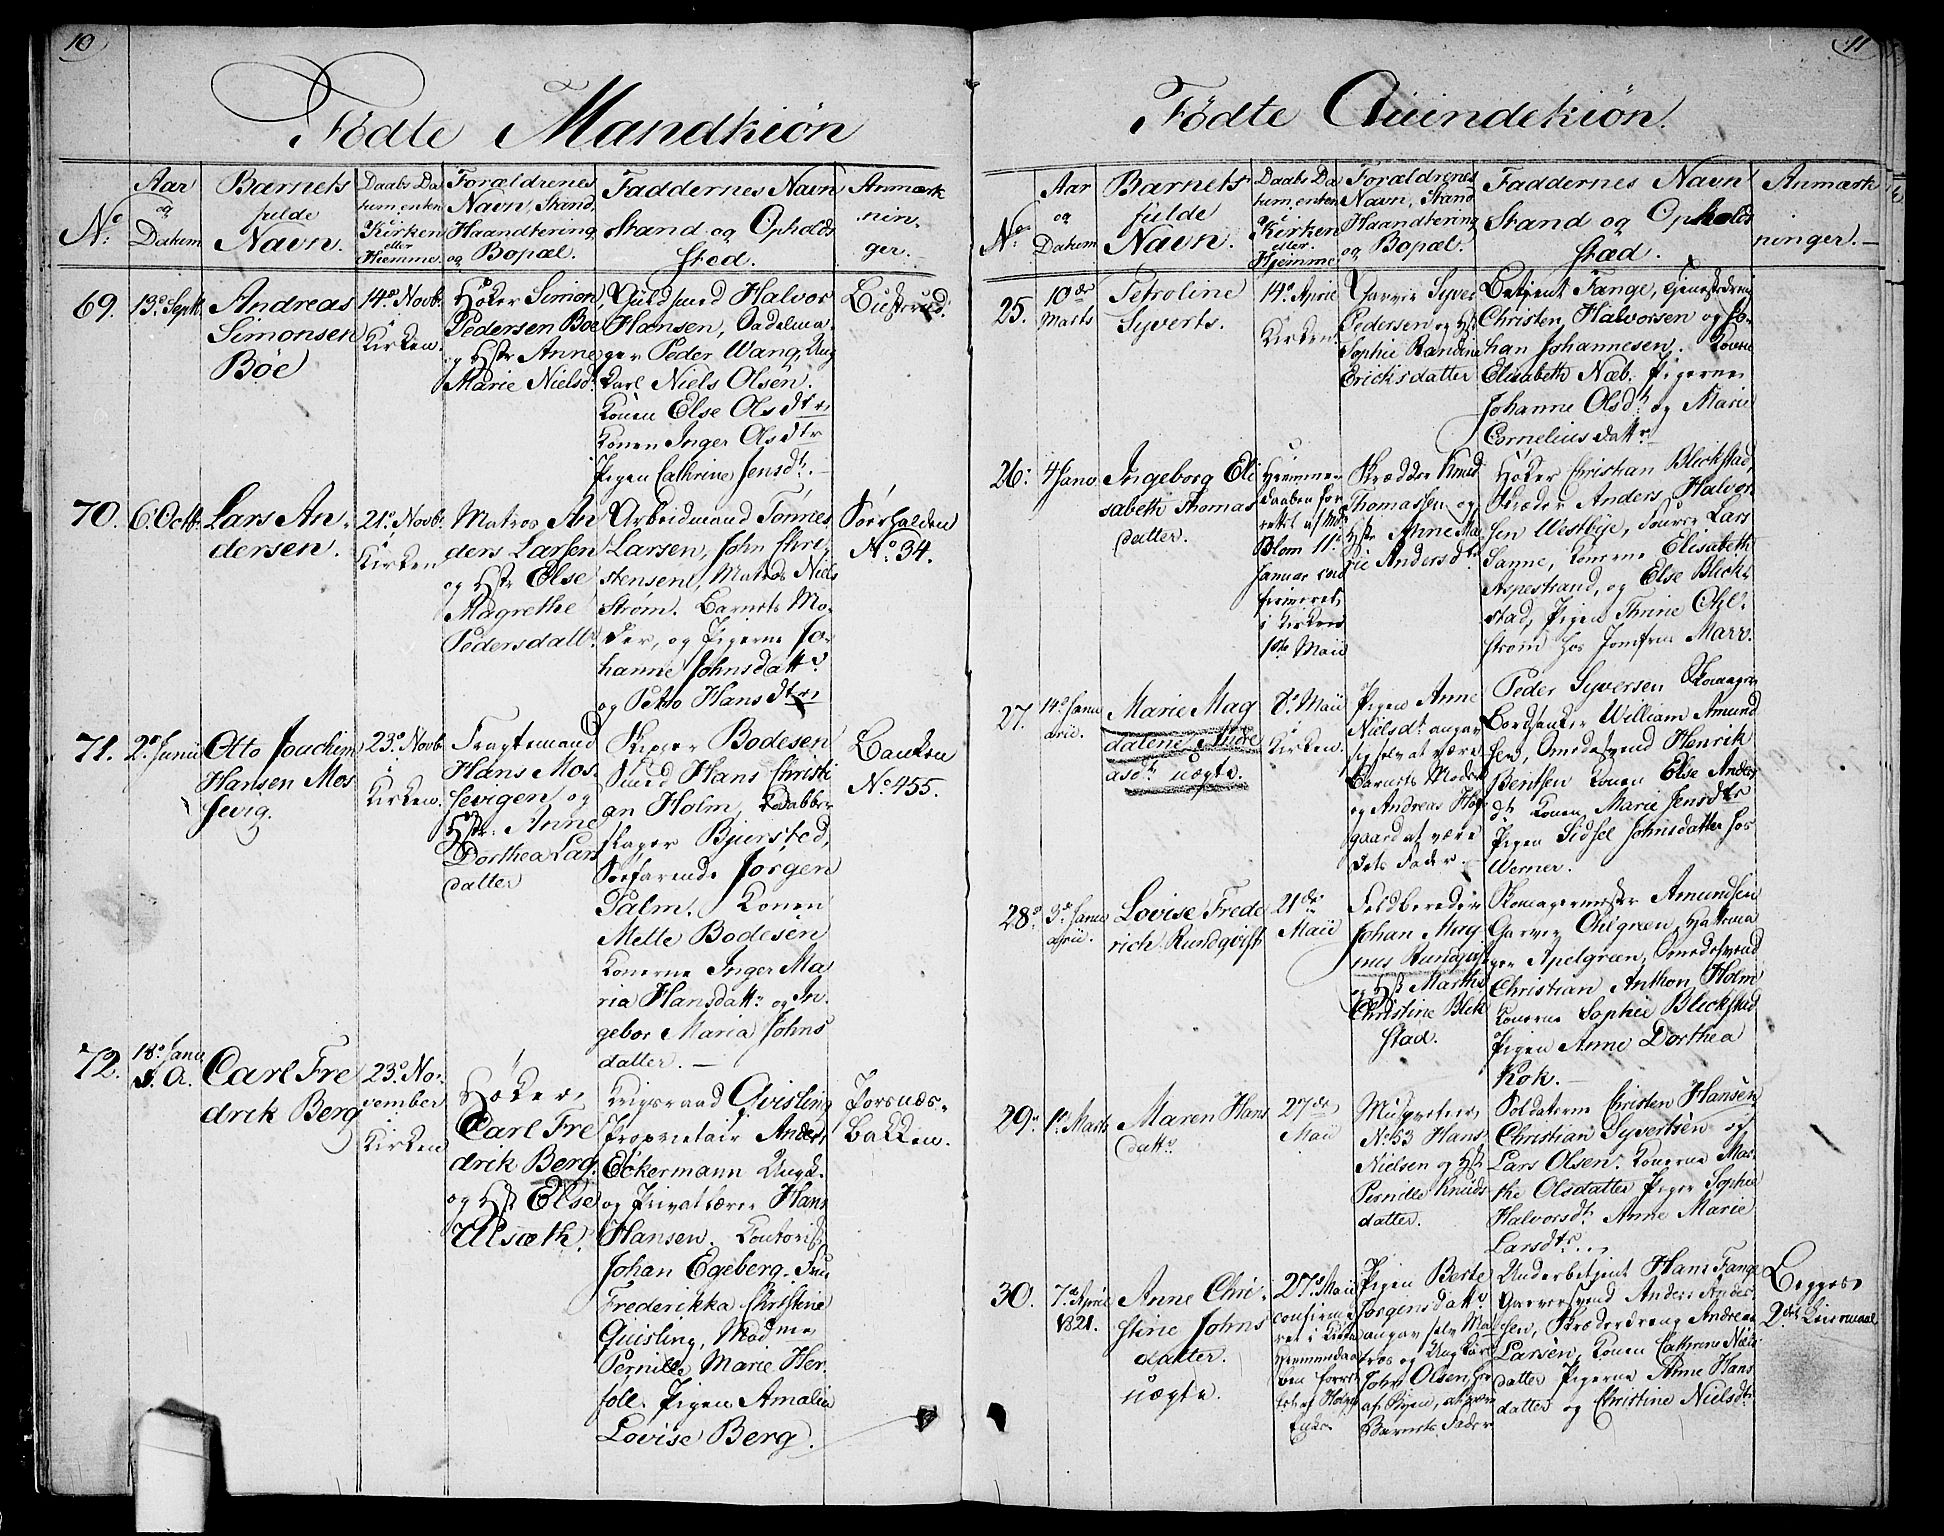 10
Födte Mandkiön
No:
Aar
og
Datum
Barnets
fulde
Navn.
Daabs Da
tum, enten
i
Kirken
eller
Hiemme.
Forældrenes
Navn, Stand,
Haandtering
og Bopæl.
Faddernes Navn
Stand og Opholds
sted.
Anmærk
nin-
ger.
69.
13de Septb.
Andreas
Simonsen
Böe
14de Novbr.
Kirken.
Höker Simon
Pedersen Böe
og Hstr Anne
Marie Nielsdt.
Guldsmed Halvor
Hansen, Sadelma-
ger Peder Wang, Ung
karl Niels Olsen.
Konen Else Olsdtr,
Konen Inger Olsdtr
Pigen Cathrine Jensdt.
70.
6te Octbr.
Lars An-
dersen.
21de Novbr.
Kirken
Matros An
ders Larsen
og Hstr Else
Magrethe
Pedersdattr
Arbeidmand Tönnes
Larsen, John Chri-
stensen, Matros Niels
Ström. Barnets Mo-
der, og Pigerne Jo-
hanne Johnsdattr
og Hansdtr
Sörhalden
No 34.
71.
2den Junii
Otto Joachim
Hansen Mos
sevig.
23de Novb.
i
Kirken.
Fragtemand
Hans Mos-
sevigen, og
Hstr: Anne
Dorthea Lars
datter
Skipper Bodesen
Smed Hans Christi
an Holm,
Bjursted,
Söefarende Jörgen
Palm. Konen
Mette Bodesen
Konerne Inger Ma
ria Hansdattr og In-
gebor Maria Johns
datter.
Banken
No 455.
72.
18de Janu
s. A.
Carl Fre
drik Berg
23de No-
vember
Kirken
Höker,
Carl Fre
drik Berg.
og Hst Else
Ulsæth.
Krigsraad Qvisling
Proprietair Anders
Eckermann Ungk.
og Privatlærer Hans
Hansen. Contorist
Johan Egeberg. Fru
Frederikka Christine
Quisling, Madme
Pernille Marie Her-
foll. Pigen Amalia
Lovise Berg.
Torsnæs-
Bakken.
11
Födte Quindekiön.
No
Aar
og
Datum
Barnets
fulde
Navn.
Daabs Da
tum, enten
i
Kirken
eller
Hjemme
Forældrenes
Navn, Stand
Haandtering
og Bopæl.
Faddernes Navn
Stand og Opholds
stæd.
Anmærk
ninger.
25.
10de
Marts
Petroline
Syverts.
14de April
Kirken.
Garver Syver
Pedersen og Hst
Sophie Randine
Ericksdatter
Betjent Fange,
Christen Halvorsen og Jo-
han Johannesen. Konen
Elisabeth Næb. Pigerne
Johanne Olsdt. og Marie
Corneliusdattr
26.
4 Janv.
Ingeborg Eli
sabeth Thomas
datter.
Hiemme-
daaben for-
rettet af Mdm
Blom 11te
Januar con
firmeret
i Kirken
1ste Maii
Skrædder Knud
Thomassen og
Hstr Anne Ma
rie Andersdtr
Höker Christian Blickstad,
Skræder Anders Halvor
sen Westbye, Lars
Sanne, Konerne Elisabeth
Aspestrand, og Else Blick-
stad, Pigen Trine Ohl-
ström hos Jomfru Marr.
27.
14de Janu
arii.
Marie Mag
dalene Andre
asdtr uægte.
8de Maii
Kirken.
Pigen Anne
Nielsdt. angav
sig selv at være
Barnets Moder
og Andreas Höj
gaard at være
dets Fader.
Peder Syversen
William Amund
sen, Smedesvend Henrik
Bentsen Konen Else Anders
dt. Konen Marie Jensdtr
Pigen Sidsel Johnsdatter hos
Werner.
28de
3de Janu
arii.
Lovise Frede
rich Rundqvist
21de
Maii
Feldbereder
Johan Mag
nus Rundqvist
og Hst Marthe
Christine Blek
stad.
Skomagermester Amundsen
Garver Ohlgreen, Hattema
ger Apelgræn, Smedesvend
Christian Anthon Holm
Konerne Sophie Bleckstad
Pigen Anne Dorthea
Kok.
29de
1te Marts
Maren Hans
dattr
27de
Maii
Musqveteer
No 53 Hans
Nielsen og Hst
Pernille Knuds
datter.
Soldaterne Christen Hansen
Christian Syvertsen og
Lars Olsen. Konerne Mar-
the Olsdatter Piger Sophie
Halvorsdt. Anne Marie
Larsdtr.
30.
7de April
1821.
Anne Chri-
stine Johns
datter.
uægte.
27de Maii
confirme-
ret i Kirken
Hiemmedaa
ben forret
tet af
Pigen Berte
Jorgensdattr
angav selv Ma-
tros og Ung karl
John Olsen
af Byen, at være
Barnets Fader
Underbetjent Hans Fange
Garversvend Anders Ander
sen, Skræderdreng Andreas
Larsen, Konen Cathrine Niels
datter Pigerne Anne Hans
datter og Christine Nielsdtr
Begges
2det Leiermaal